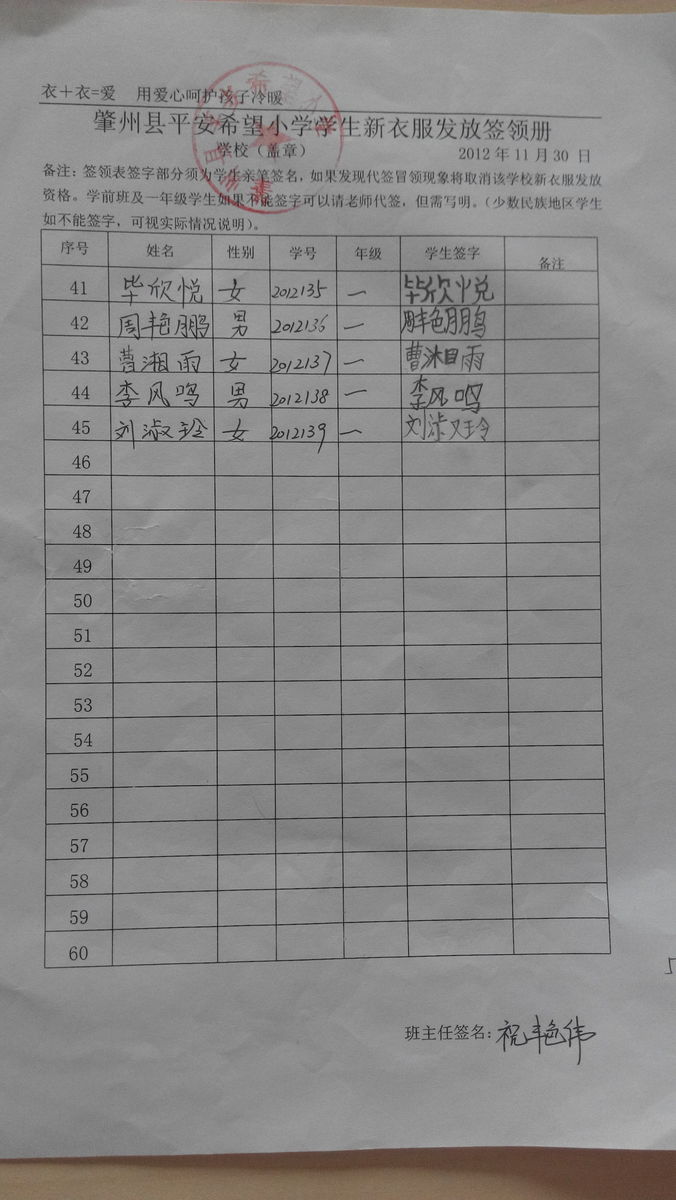 衣+衣=爱 用爱心呵护孩子冷暖
肇州县平安希望小学学生新衣服发放签领册
学校（盖章） 2012年11月30日
备注：签领表签字部分须为学生亲笔签名，如果发现代签冒领现象将取消该学校新衣服发放
资格。学前班及一年级学生如果不能签字可以请老师代签，但需写明。（少数民族地区学生
如不能签字，可视实际情况说明）。
序号 姓名 性别 学号 年级 学生签字 备注
41 毕欣悦 女 2012135 一 毕欣悦
42 周艳鹏 男 2012136 一 周艳鹏
43 曹湘雨 女 2012137 一 曹湘雨
44 李风鸣 男 2012138 一 李风鸣
45 刘淑玲 女 2012139 一 刘淑玲
46
47
48
49
50
51
52
53
54
55
56
57
58
59
60
班主任签名：祝艳伟